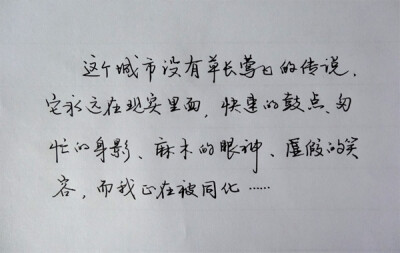 这个城市没有草长莺飞的传说，
它永远在现实里面，快速的鼓点、匆
忙的身影、麻木的眼神、虚假的笑
容，而我正在被同化……